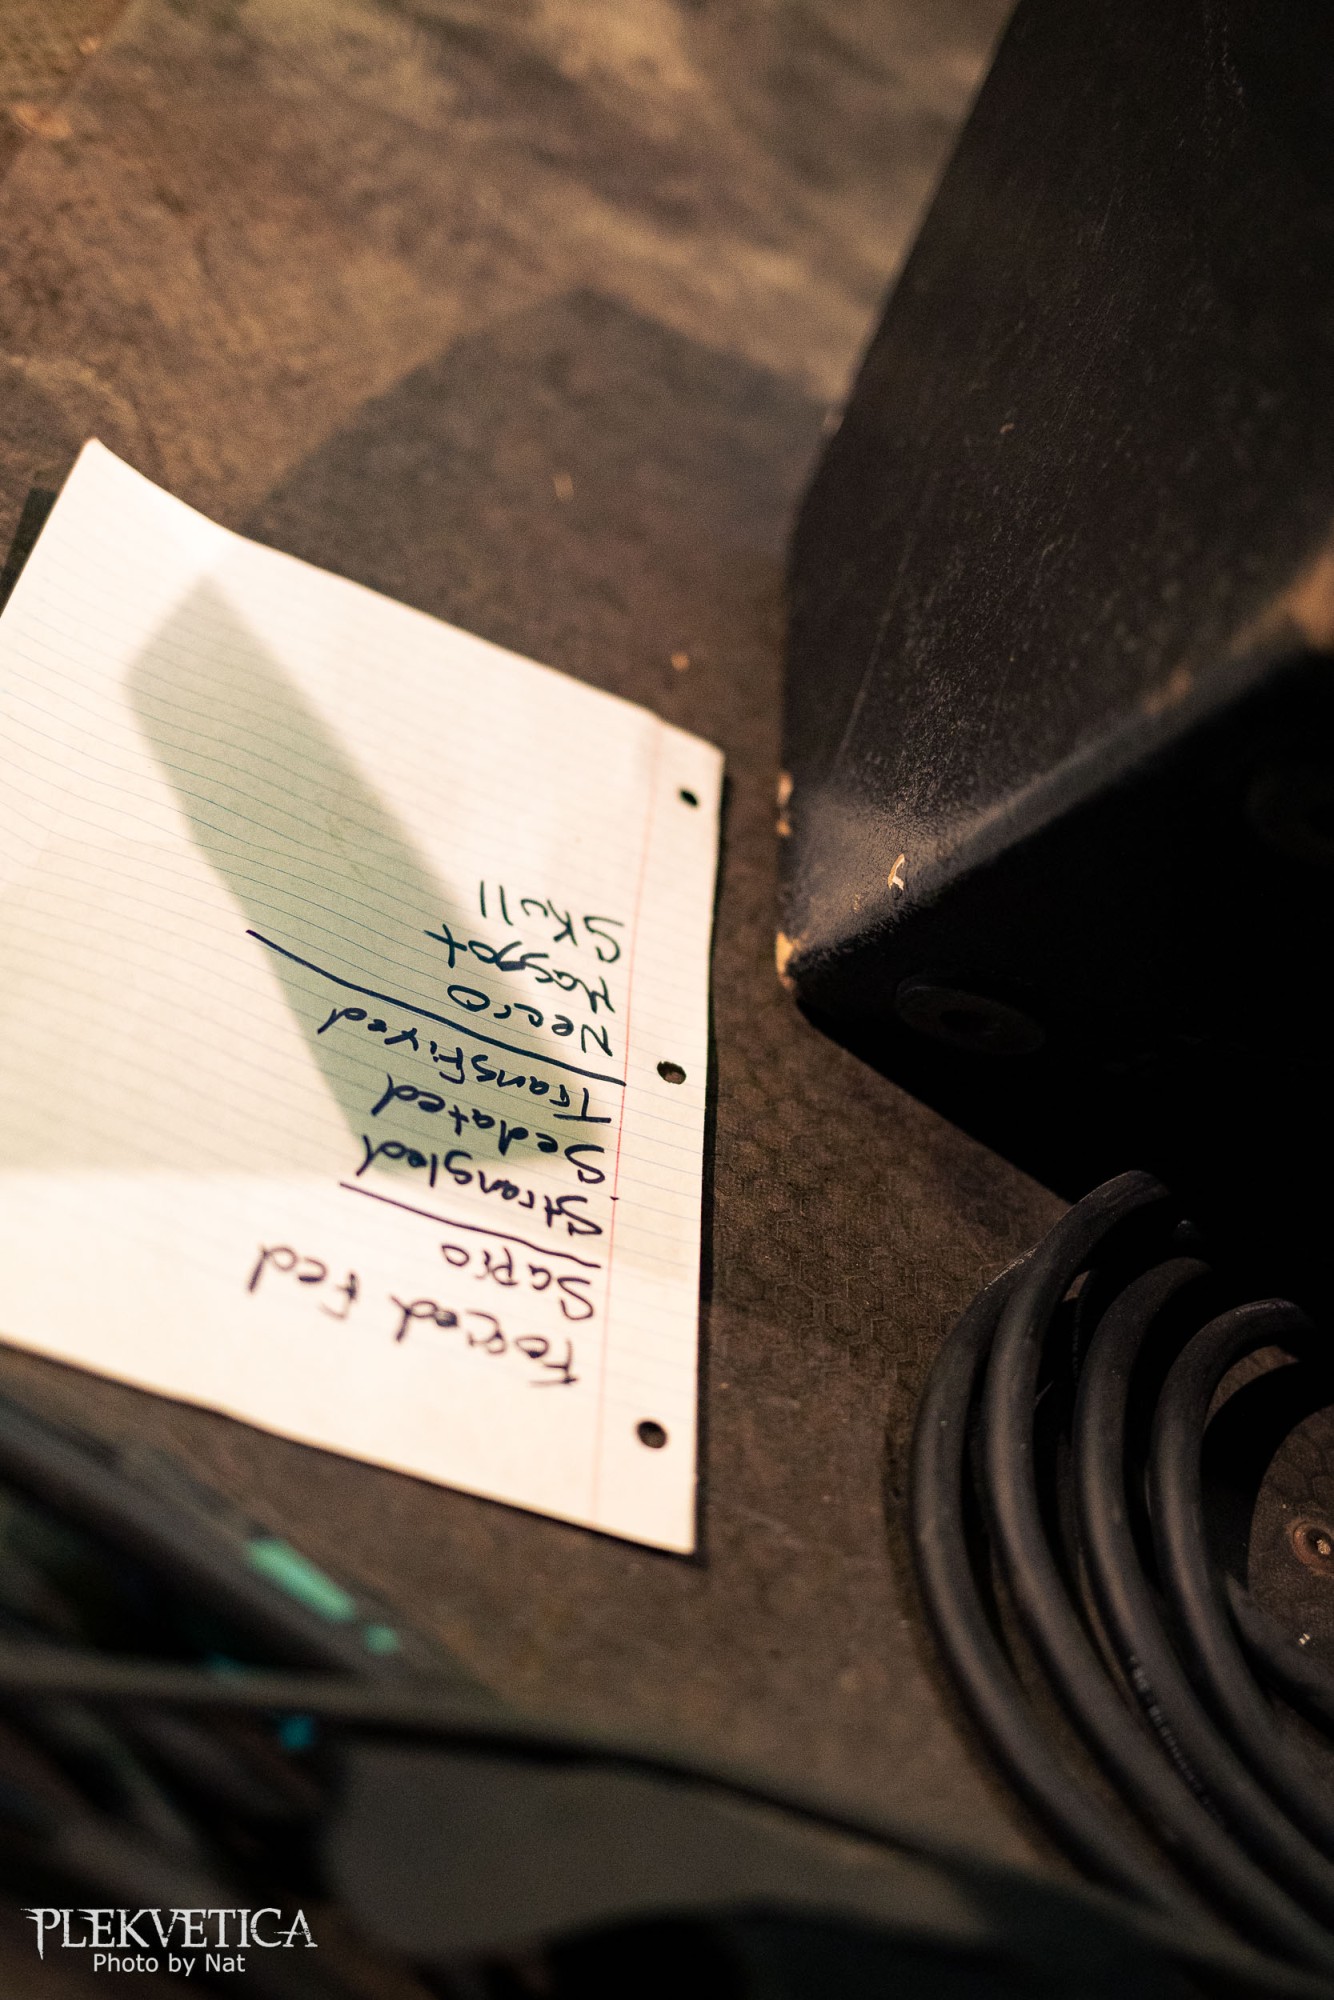 Forced Fed
Sapio
Strangled
Sedated
Transfixed
Necro
Maggot
Skull
PLEKVETICA
Photo by Nat